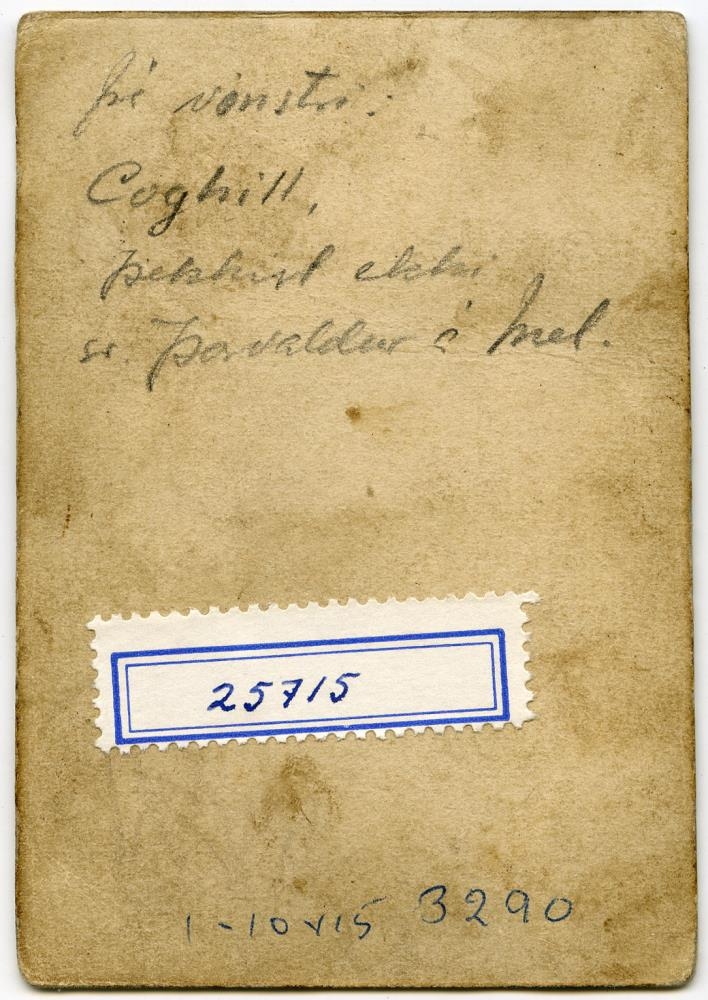 frá vinstri:
Coghill,
þekkist ekki
sr. Þorvaldur á Mel.
25715
1-10x15 3290